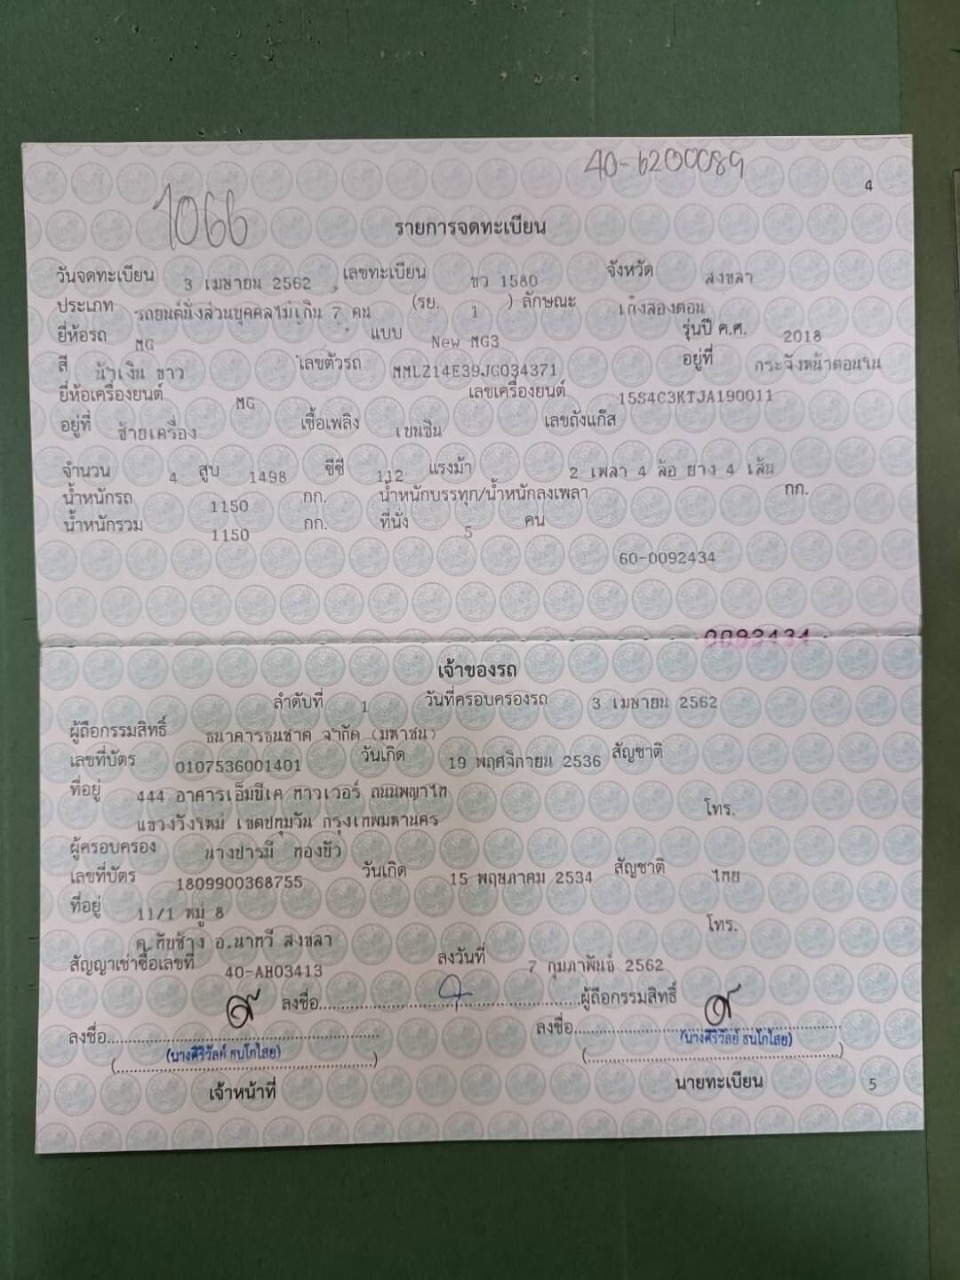 40-6200089
4
1066
รายการจดทะเบียน
วันจดทะเบียน 3 เมษายน 2562 เลขทะเบียน ขว 1580 จังหวัด สงขลา
ประเภท รถยนต์นั่งส่วนบุคคลไม่เกิน 7 คน (รย. 1 ) ลักษณะ เก๋งสองตอน
ยี่ห้อรถ MG แบบ New MG3 รุ่นปี ค.ศ. 2018
สี น้ำเงิน ขาว เลขตัวรถ MMLZ14E39JG034371 อยู่ที่ กระจังหน้าตอนใน
ยี่ห้อเครื่องยนต์ MG เลขเครื่องยนต์ 15S4C3KTJA190011
อยู่ที่ ซ้ายเครื่อง เชื้อเพลิง เบนซิน เลขถังแก๊ส
จำนวน 4 สูบ 1498 ซีซี 112 แรงม้า 2 เพลา 4 ล้อ ยาง 4 เส้น
น้ำหนักรถ 1150 กก. น้ำหนักบรรทุก/น้ำหนักลงเพลา กก.
น้ำหนักรวม 1150 กก. ที่นั่ง 5 คน
60-0092434
0092434
เจ้าของรถ
ลำดับที่ 1 วันที่ครอบครองรถ 3 เมษายน 2562
ผู้ถือกรรมสิทธิ์ ธนาคารธนชาต จำกัด (มหาชน)
เลขที่บัตร 0107536001401 วันเกิด 19 พฤศจิกายน 2536 สัญชาติ
ที่อยู่ 444 อาคารเอ็มบีเค ทาวเวอร์ ถนนพญาไท
แขวงวังใหม่ เขตปทุมวัน กรุงเทพมหานคร โทร.
ผู้ครอบครอง นางปารมี ทองขิว
เลขที่บัตร 1809900368755 วันเกิด 15 พฤษภาคม 2534 สัญชาติ ไทย
ที่อยู่ 11/1 หมู่ 8
ต.ทับช้าง อ.นาทวี สงขลา โทร.
สัญญาเช่าซื้อเลขที่ 40-AH03413 ลงวันที่ 7 กุมภาพันธ์ 2562
ลงชื่อ ผู้ถือกรรมสิทธิ์
ลงชื่อ ลงชื่อ
(นางศิริวัลย์ ธนโกไสย) (นางศิริวัลย์ ธนโกไสย)
เจ้าหน้าที่ นายทะเบียน
5